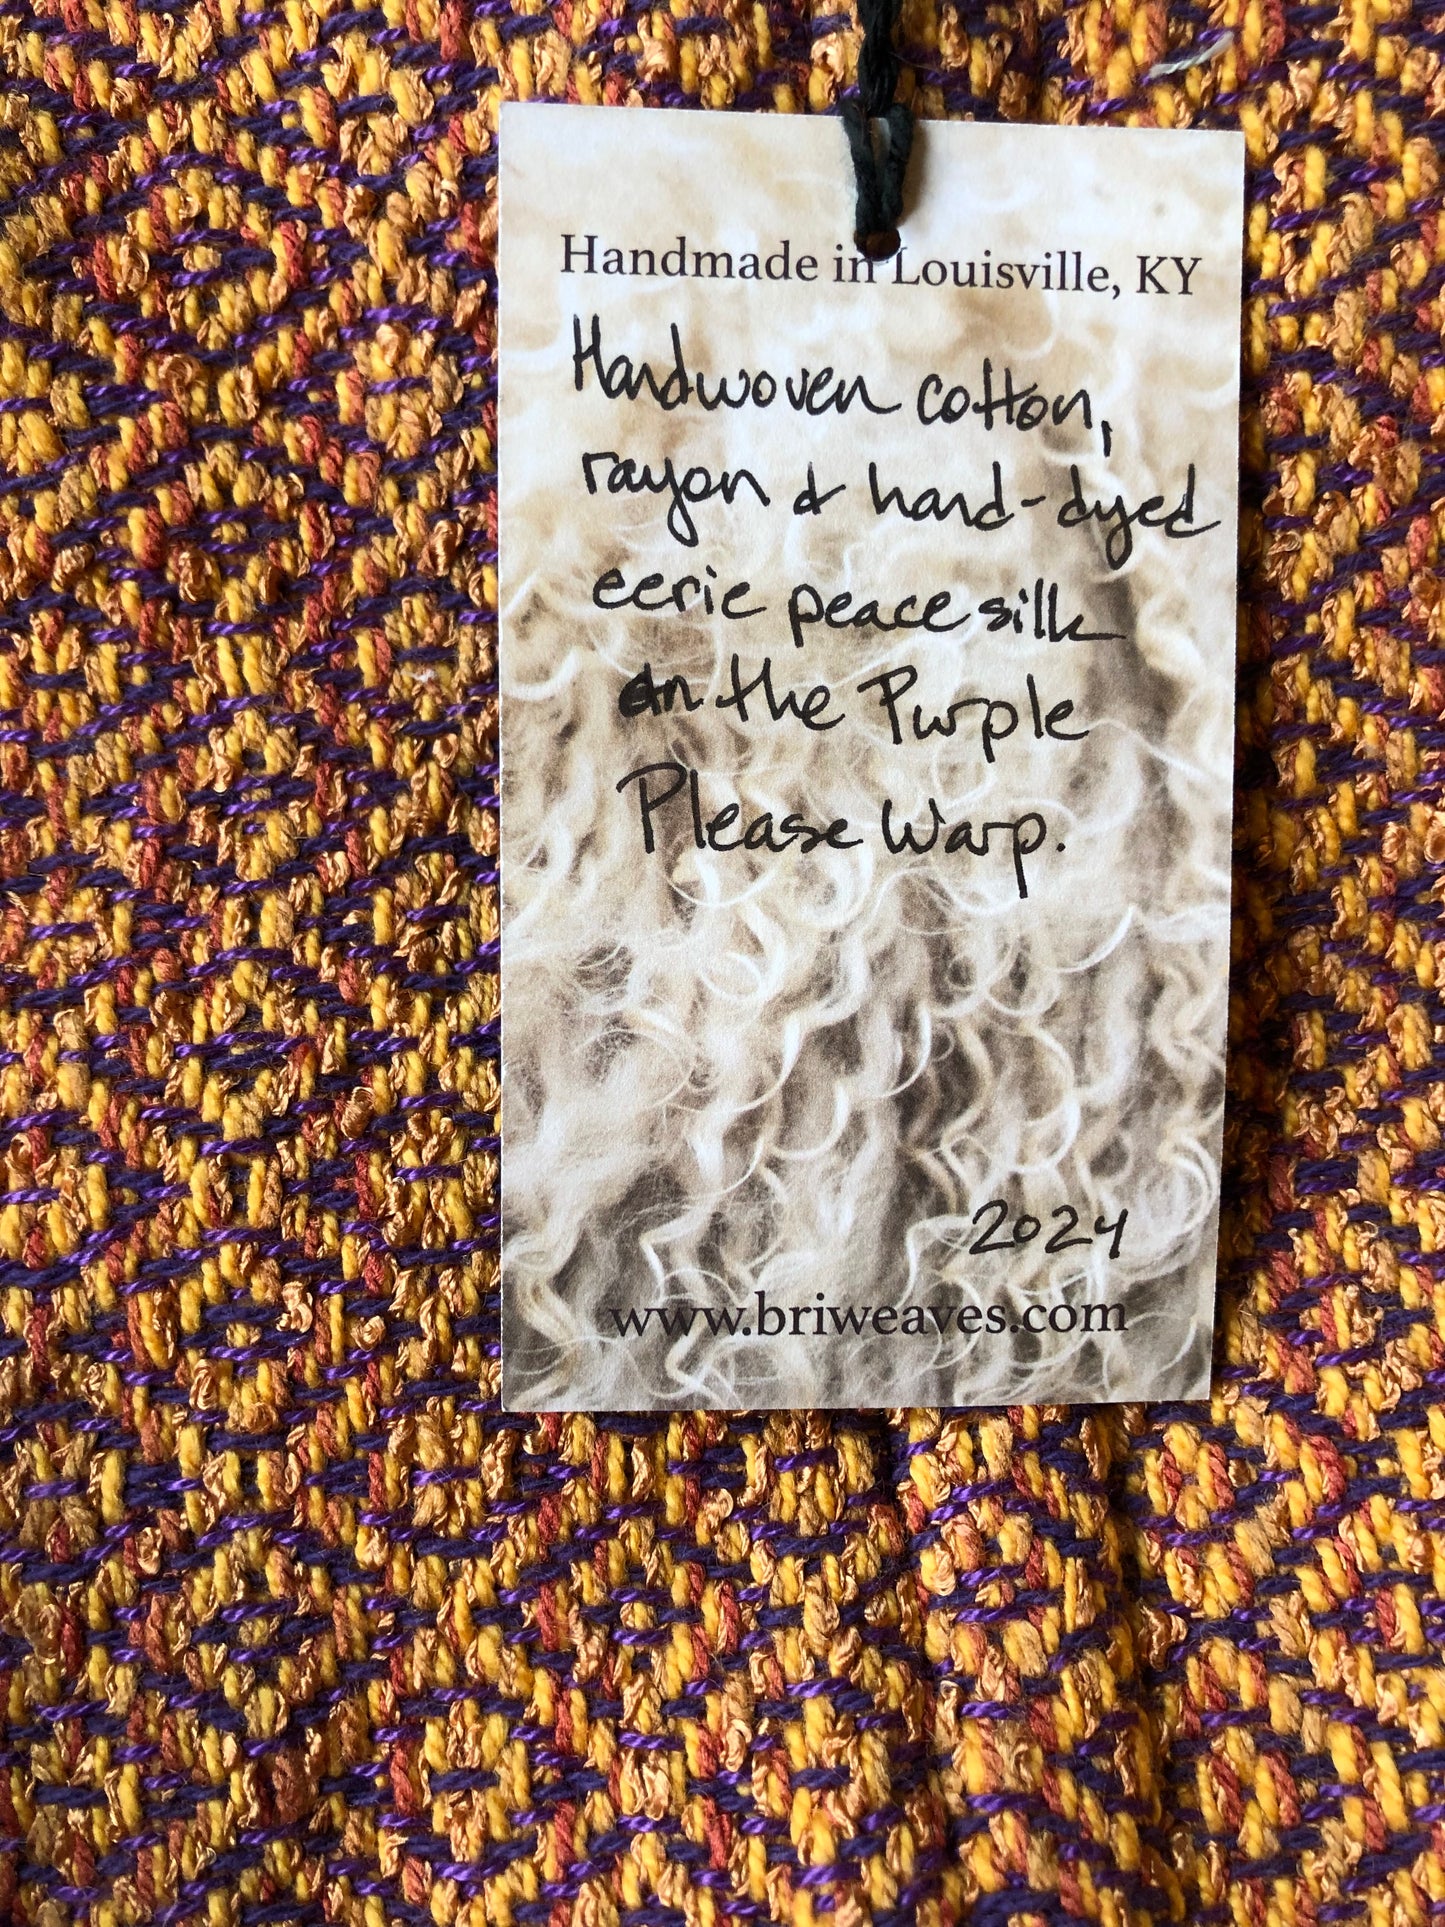 Handmade in Louisville, KY
Handwoven cotton,
rayon & hand-dyed
eerie peace silk
on the Purple
Please Warp.
2024
www.briweaves.com